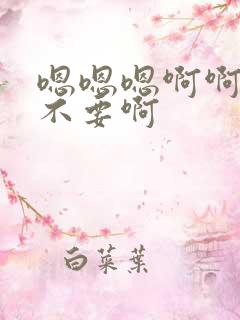 嗯嗯嗯啊啊
不要啊
白菜葉